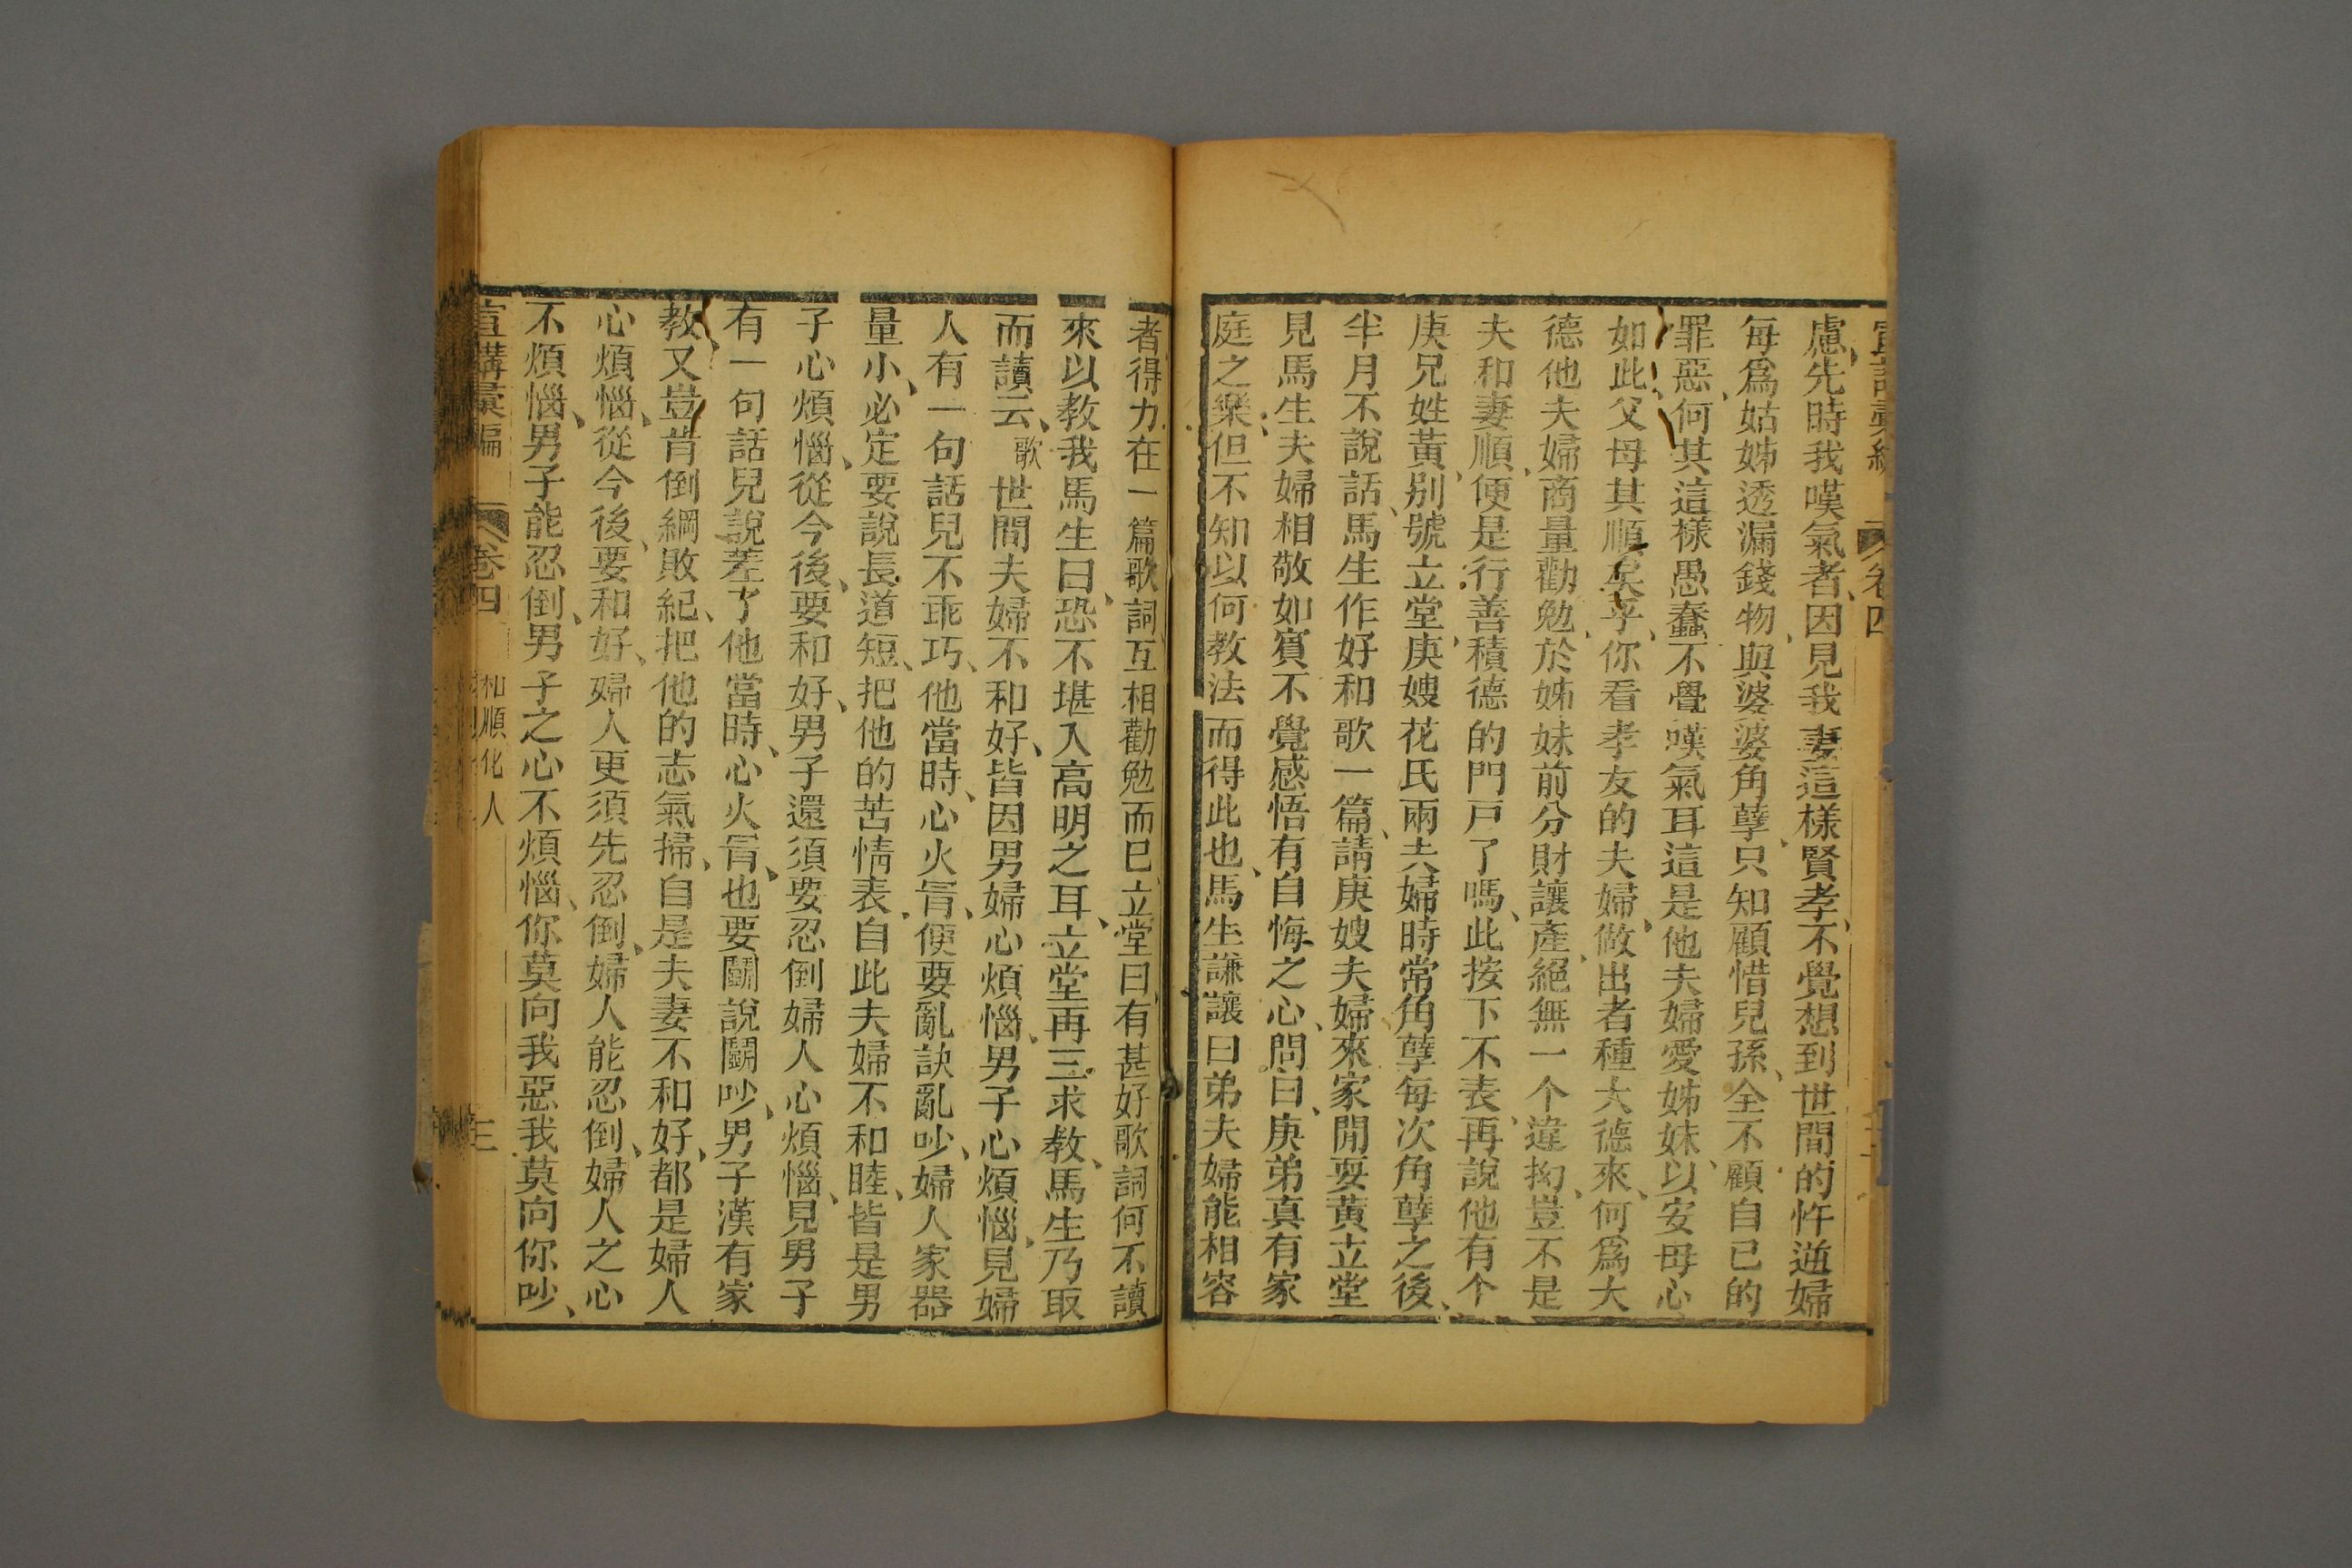 宣講彙編 卷四
慮、先時我嘆氣者、因見我妻這樣賢孝、不覺想到世間的忤逆婦
每爲姑姊透漏錢物、與婆婆角孽、只知顧惜兒孫、全不顧自己的
罪惡、何其這樣愚蠢、不覺嘆氣耳這是他夫婦愛姊妹、以安母心
如此、父母其順矣乎、你看孝友的夫婦、做出者種大德來、何爲大
德他夫婦商量勸勉、於姊妹前分財讓產、絕無一个違拗、豈不是
夫和妻順、便是行善積德的門戶了嗎、此按下不表、再說他有个
庚兄姓黃、别號立堂、庚嫂花氏兩夫婦時常角孽每次角孽之後、
半月不說話、馬生作好和歌一篇、請庚嫂夫婦來家閒耍黃立堂
見馬生夫婦相敬如賓不覺感悟有自悔之心、問曰、庚弟真有家
庭之樂、但不知以何教法而得此也、馬生謙讓曰弟夫婦能相容
者得力在一篇歌詞、互相勸勉而已、立堂曰、有甚好歌詞何不讀
來以教我馬生曰、恐不堪入高明之耳、立堂再三求教、馬生乃取
而讀云、歌世間夫婦不和好、皆因男婦心煩惱、男子心煩惱、見婦
人有一句話兒不乖巧、他當時、心火冐、便要亂訣亂吵、婦人家器
量小、必定要說長道短、把他的苦情表、自此夫婦不和睦、皆是男
子心煩惱、從今後、要和好、男子還須要忍倒婦人心煩惱、見男子
有一句話兒說差了他當時、心火冐、也要鬪說鬪吵、男子漢有家
教、又豈肯倒綱敗紀、把他的志氣掃、自是夫妻不和好、都是婦人
心煩惱、從今後、要和好、婦人更須先忍倒、婦人能忍倒、婦人之心
不煩惱、男子能忍倒、男子之心不煩惱、你莫向我惡我莫向你吵、
宣講彙編 卷四 和順化人 三